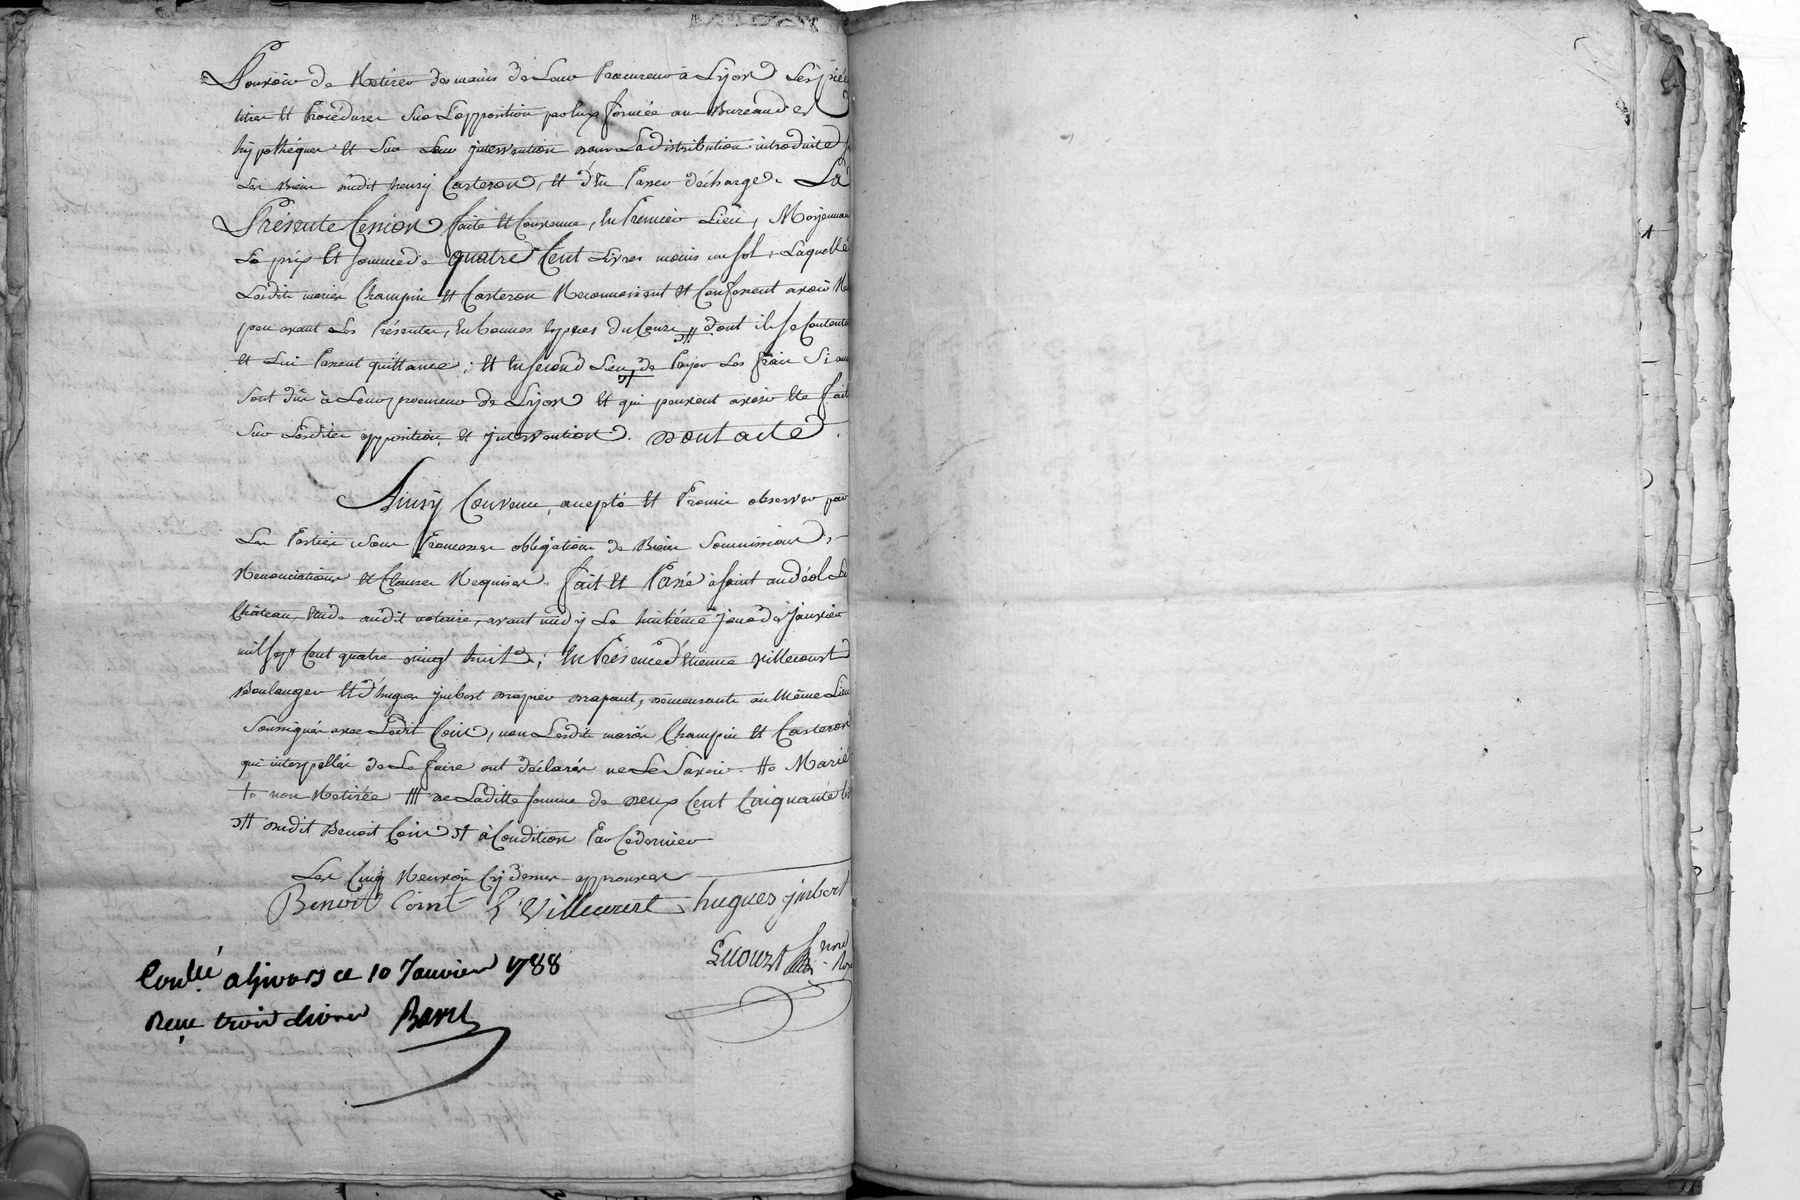 Pouvoir de Retirer des mains de Leur Procureur à Lyon Les pié
titres et Procédures Sur L'opposition par Eux formée au Bureau des
hypothéques et Sur Leur jntervention dans La distribution introduite
Les Biens dudit henry Casteron, et d'En Passer décharge. La
Présente Cession faite et Convenue, En Premier Lieu, Moyennant
Le prix et somme de quatre Cent Livres moins un sol, Laquelle
Lesdits mariés Champin et Casteron Reconnoissent et Confessent avoir
peu avant Les Présentes, En bonnes Espèces du Cours, dont ils se Contentent
et Lui Passent quittance; et En second Lieu de Payer Les frais Si au
Sont dûs à Leur procureur de Lyon et qui peuvent avoir été faits
Sur Lesdites opposition et jntervention. Dont acte.
Ainsy Convenu, accepté et Promis observer par
Les Parties sous Promesses obligations de Biens Soumissions,
Renonciations et Clauses Requises. fait et Passé à saint andéol Le
Château, Etude dudit notaire, avant midy Le huitième jour de Janvier
mil sept Cent quatre vingt huit; En Présence d'Etienne Villecourt
Boulanger et d'hugues jmbert Drapant, demeurants au Même Lieu
Soussignés avec Ledit Coint, non Lesdits mariés Champin et Casteron
qui interpellés de Le faire ont déclarés ne Le Savoir. Marie
non Retirée de Laditte somme de deux Cent Cinquante
dudit Benoit Coint à Condition Par Ce dernier
Les Cinq Renvois Cy dessus approuvés
Benoit Coint E Villecourt hugues jmbert
Controllé a Givors ce 10 Janvier 1788
Reçu trois livres